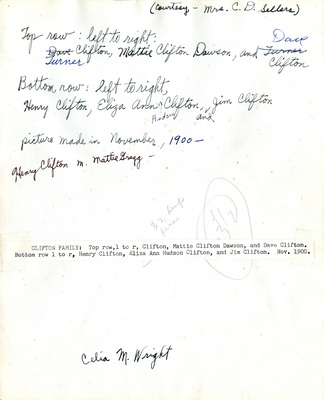 (Courtesy - Mrs. C. D. Sellers)
Top row: left to right: Dave
Dave Clifton, Mattie Clifton Dawson, and Turner
Turner Clifton
Bottom row: left to right,
Henry Clifton, Eliza Ann Clifton, Jim Clifton
Hudson and
picture made in November, 1900-
Henry Clifton m. Mattie Gregg -
CLIFTON FAMILY: Top row,l to r, Clifton, Mattie Clifton Dawson, and Dave Clifton.
Bottom row l to r, Henry Clifton, Eliza Ann Hudson Clifton, and Jim Clifton. Nov. 1900.
Celia M. Wright